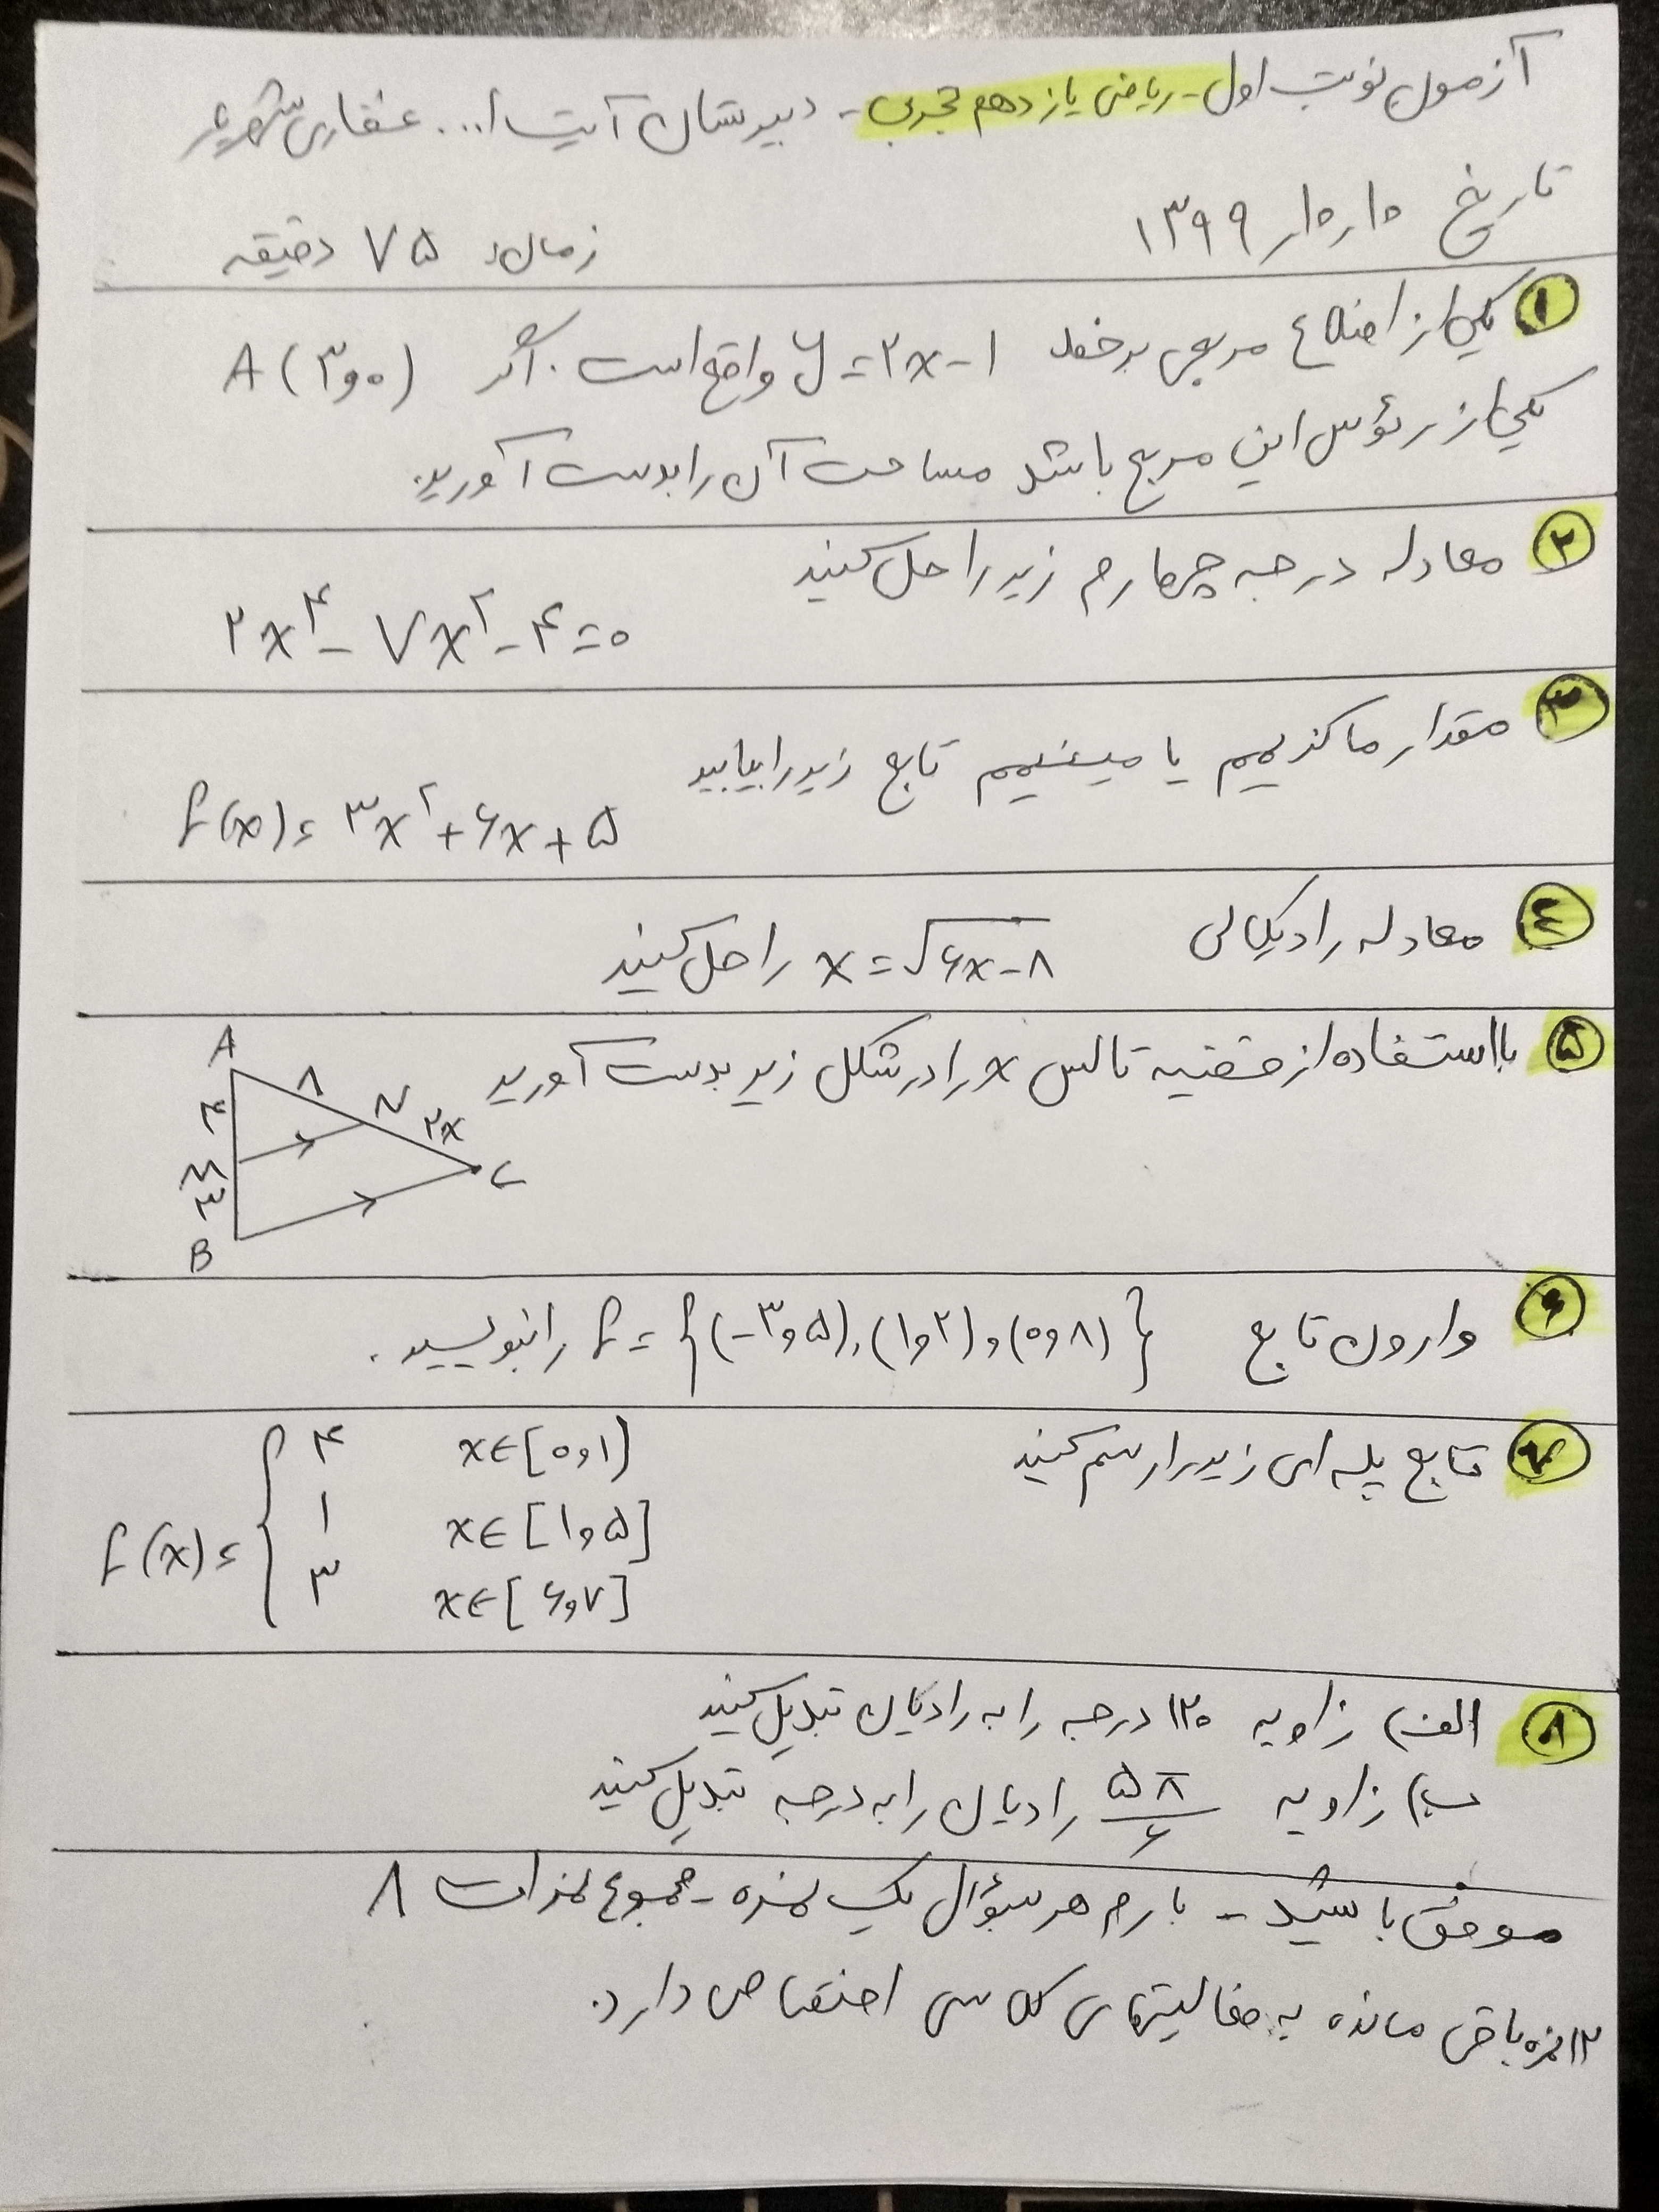 آزمون نوبت اول - ریاضی یازدهم تجربی - دبیرستان آیت ا... غفاری
تاریخ ۱۳۹۹/۱۰/۱۰
زمان: ۷۵ دقیقه
۱ یکی از اضلاع مربعی بر خط y = ۲x - ۱ واقع است. اگر A (۳و۰)
یکی از رئوس این مربع باشد مساحت آن را بدست آورید.
۲ معادله درجه چهارم زیر را حل کنید
۲x⁴ - ۷x² - ۴ = ۰
۳ مقدار ماکزیمم یا مینیمم تابع زیر را بیابید
f(x) = ۳x² + ۶x + ۵
۴ معادله رادیکالی x = √۶x - ۸ را حل کنید
۵ با استفاده از قضیه تالس x را در شکل زیر بدست آورید
A
۸
۴
N
۲x
M
C
۳
B
۶ وارون تابع f = {(-۳و۵), (۱و۲), (۰و۸)} را بنویسید.
۷ تابع پله ای زیر را رسم کنید
f(x) = { ۴ x∈[۰و۱)
۱ x∈[۱و۵]
۳ x∈[۶و۷]
۸ الف) زاویه ۱۲۰ درجه را به رادیان تبدیل کنید
ب) زاویه ۵π/۶ رادیان را به درجه تبدیل کنید
موفق باشید - بارم هر سؤال یک نمره - مجموع نمرات ۸
۱۲ نمره باقی مانده به فعالیتهای کلاسی اختصاص دارد.